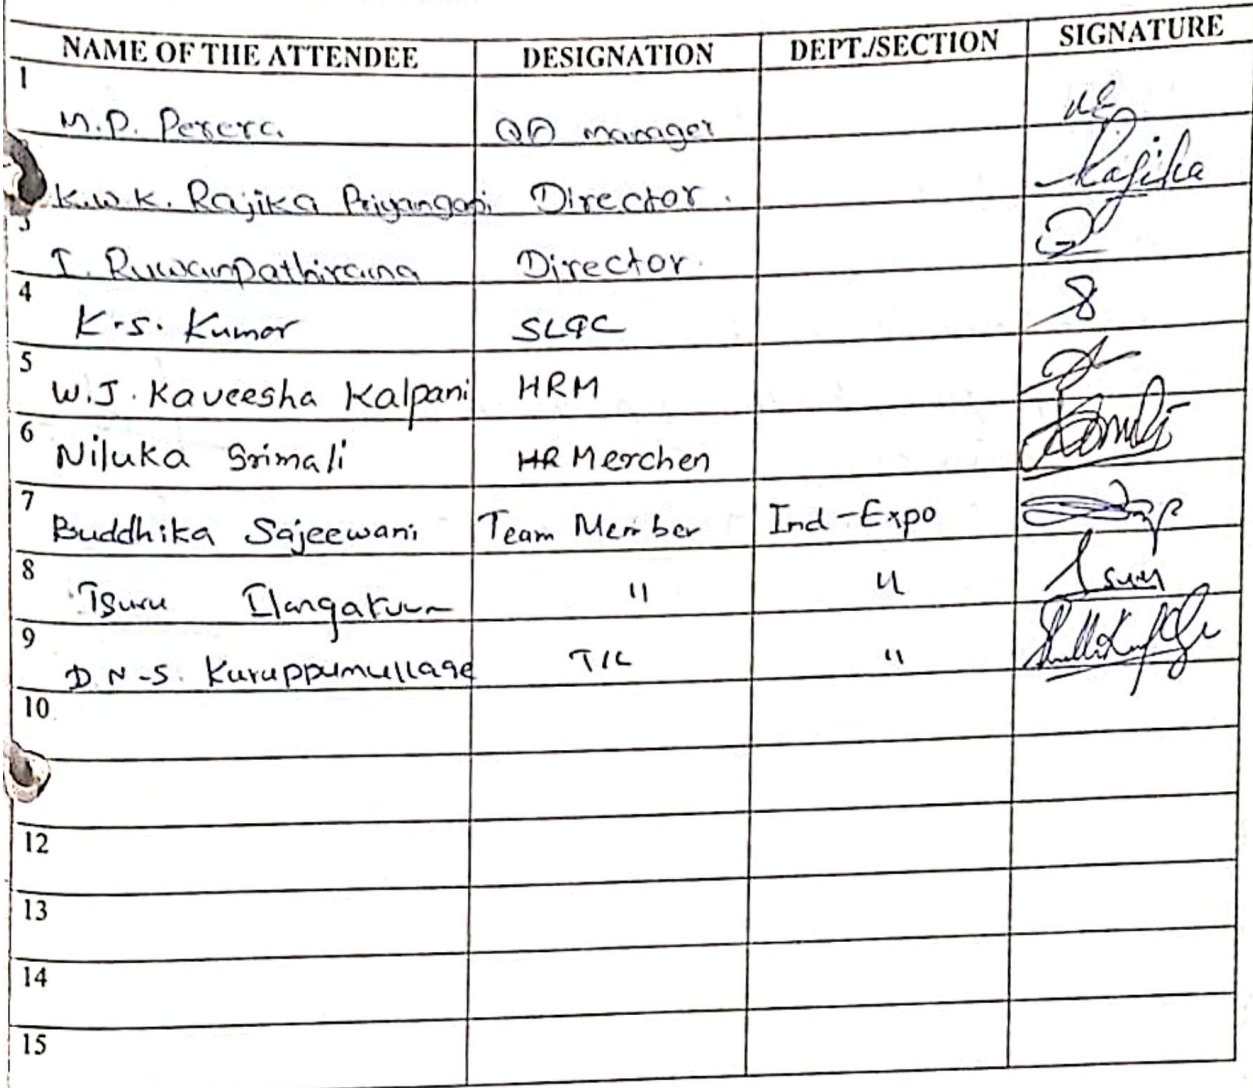 NAME OF THE ATTENDEE DESIGNATION DEPT./SECTION SIGNATURE
1 M.P. Perera QA manager
K.W.K. Rajika Priyangani Director. Rajika
3 I. Ruwanpathirana Director.
4 K.S. Kumar SLQC
5 W.J. Kaveesha Kalpani HRM
6 Niluka Srimali HR Merchen
7 Buddhika Sajeewani Team Member Ind-Expo
8 Isuru Ilangakuun " " Isuru
9 D.N-S. Kuruppumullage T/L "
10
12
13
14
15